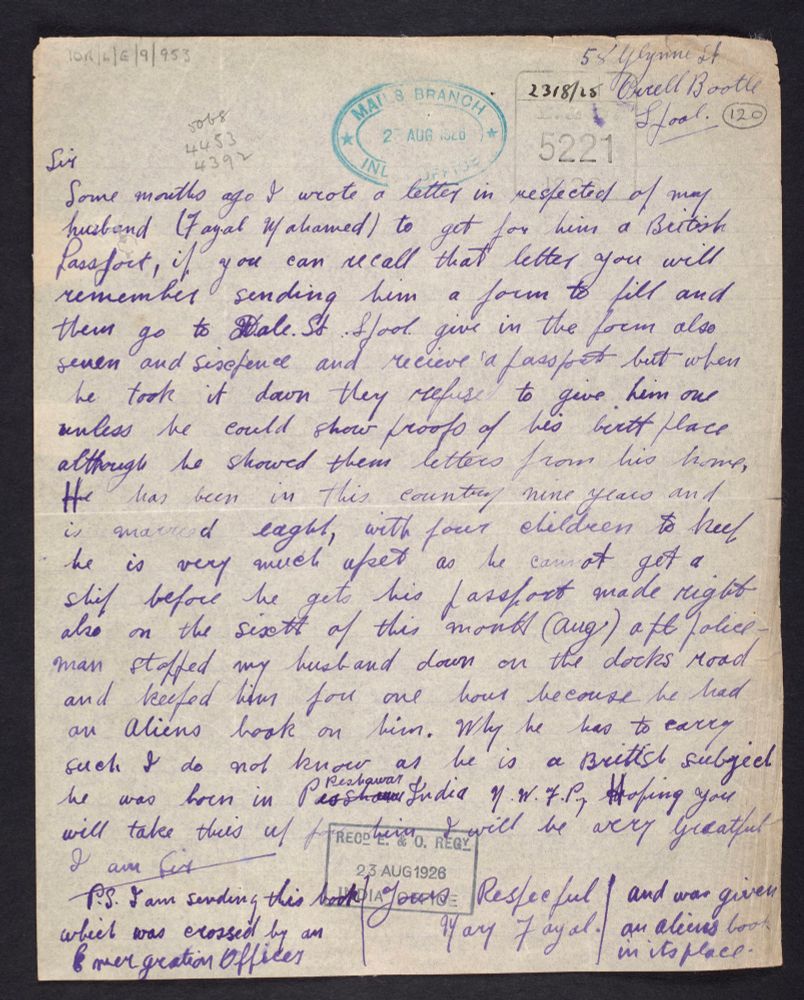 IOR/L/E/9/953
58 Glynne St
2318/25 Orrell Bootle
L'pool. 120
MAILS BRANCH
2 AUG 1926
5068
4453
4392
5221
Sir
Some months ago I wrote a letter in respected of my
husband (Fayal Mahamed) to get for him a British
Passport, if you can recall that letter you will
remember sending him a form to fill and
them go to Dale. St. L'pool give in the form also
seven and sixpence and recieve a passport but when
he took it down they refuse to give him one
unless he could show proofs of his birth place
although he showed them letters from his home,
He has been in this country nine years and
is married eaght, with four children to keep
he is very much upset as he cannot get a
ship before he gets his passport made right
also on the sixth of this month (Aug) a police-
man stopped my husband down on the docks road
and keeped him for one hour becouse he had
an aliens book on him. Why he has to carry
such I do not know as he is a British subject
he was born in Peshawar India N.W.F.P., Hoping you
will take this up for him I will be very greatful
I am Sir
RECD E. & O. REGY
23 AUG 1926
INDIA OFFICE
P.S. I am sending this book
which was crossed by an
Emergration Officer
Yours Respecful
Mary Fayal.
and was given
an aliens book
in its place.